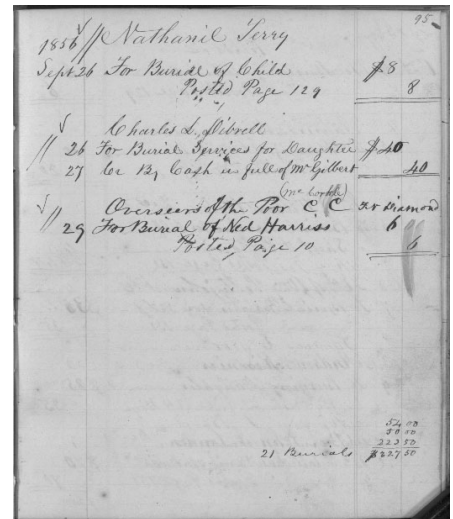 95
1856 // Nathanil Terry
Sept 26 For Burial of Child $8
Posted Page 129 8
Charles L. Dibrell
// 26 For Burial Services for Daughter $40
27 Cr By Cash in full of Mr Gilbert 40
(Mc Corkle)
Overseers of the Poor C. C. Diamond
// 29 For Burial of Ned Harriss 6
Posted, Page 10 6
54 00
50 50
223 50
21 Burials $327 50